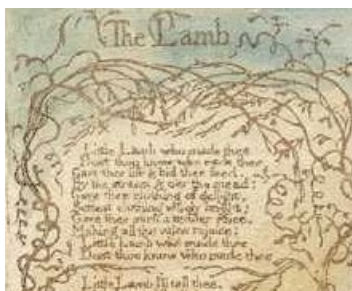 The Lamb
Little Lamb who made thee
Dost thou know who made thee
Gave thee life & bid thee feed.
By the stream & o'er the mead;
Gave thee clothing of delight,
Softest clothing wooly bright;
Gave thee such a tender voice,
Making all the vales rejoice:
Little Lamb who made thee
Dost thou know who made thee
Little Lamb I'll tell thee,